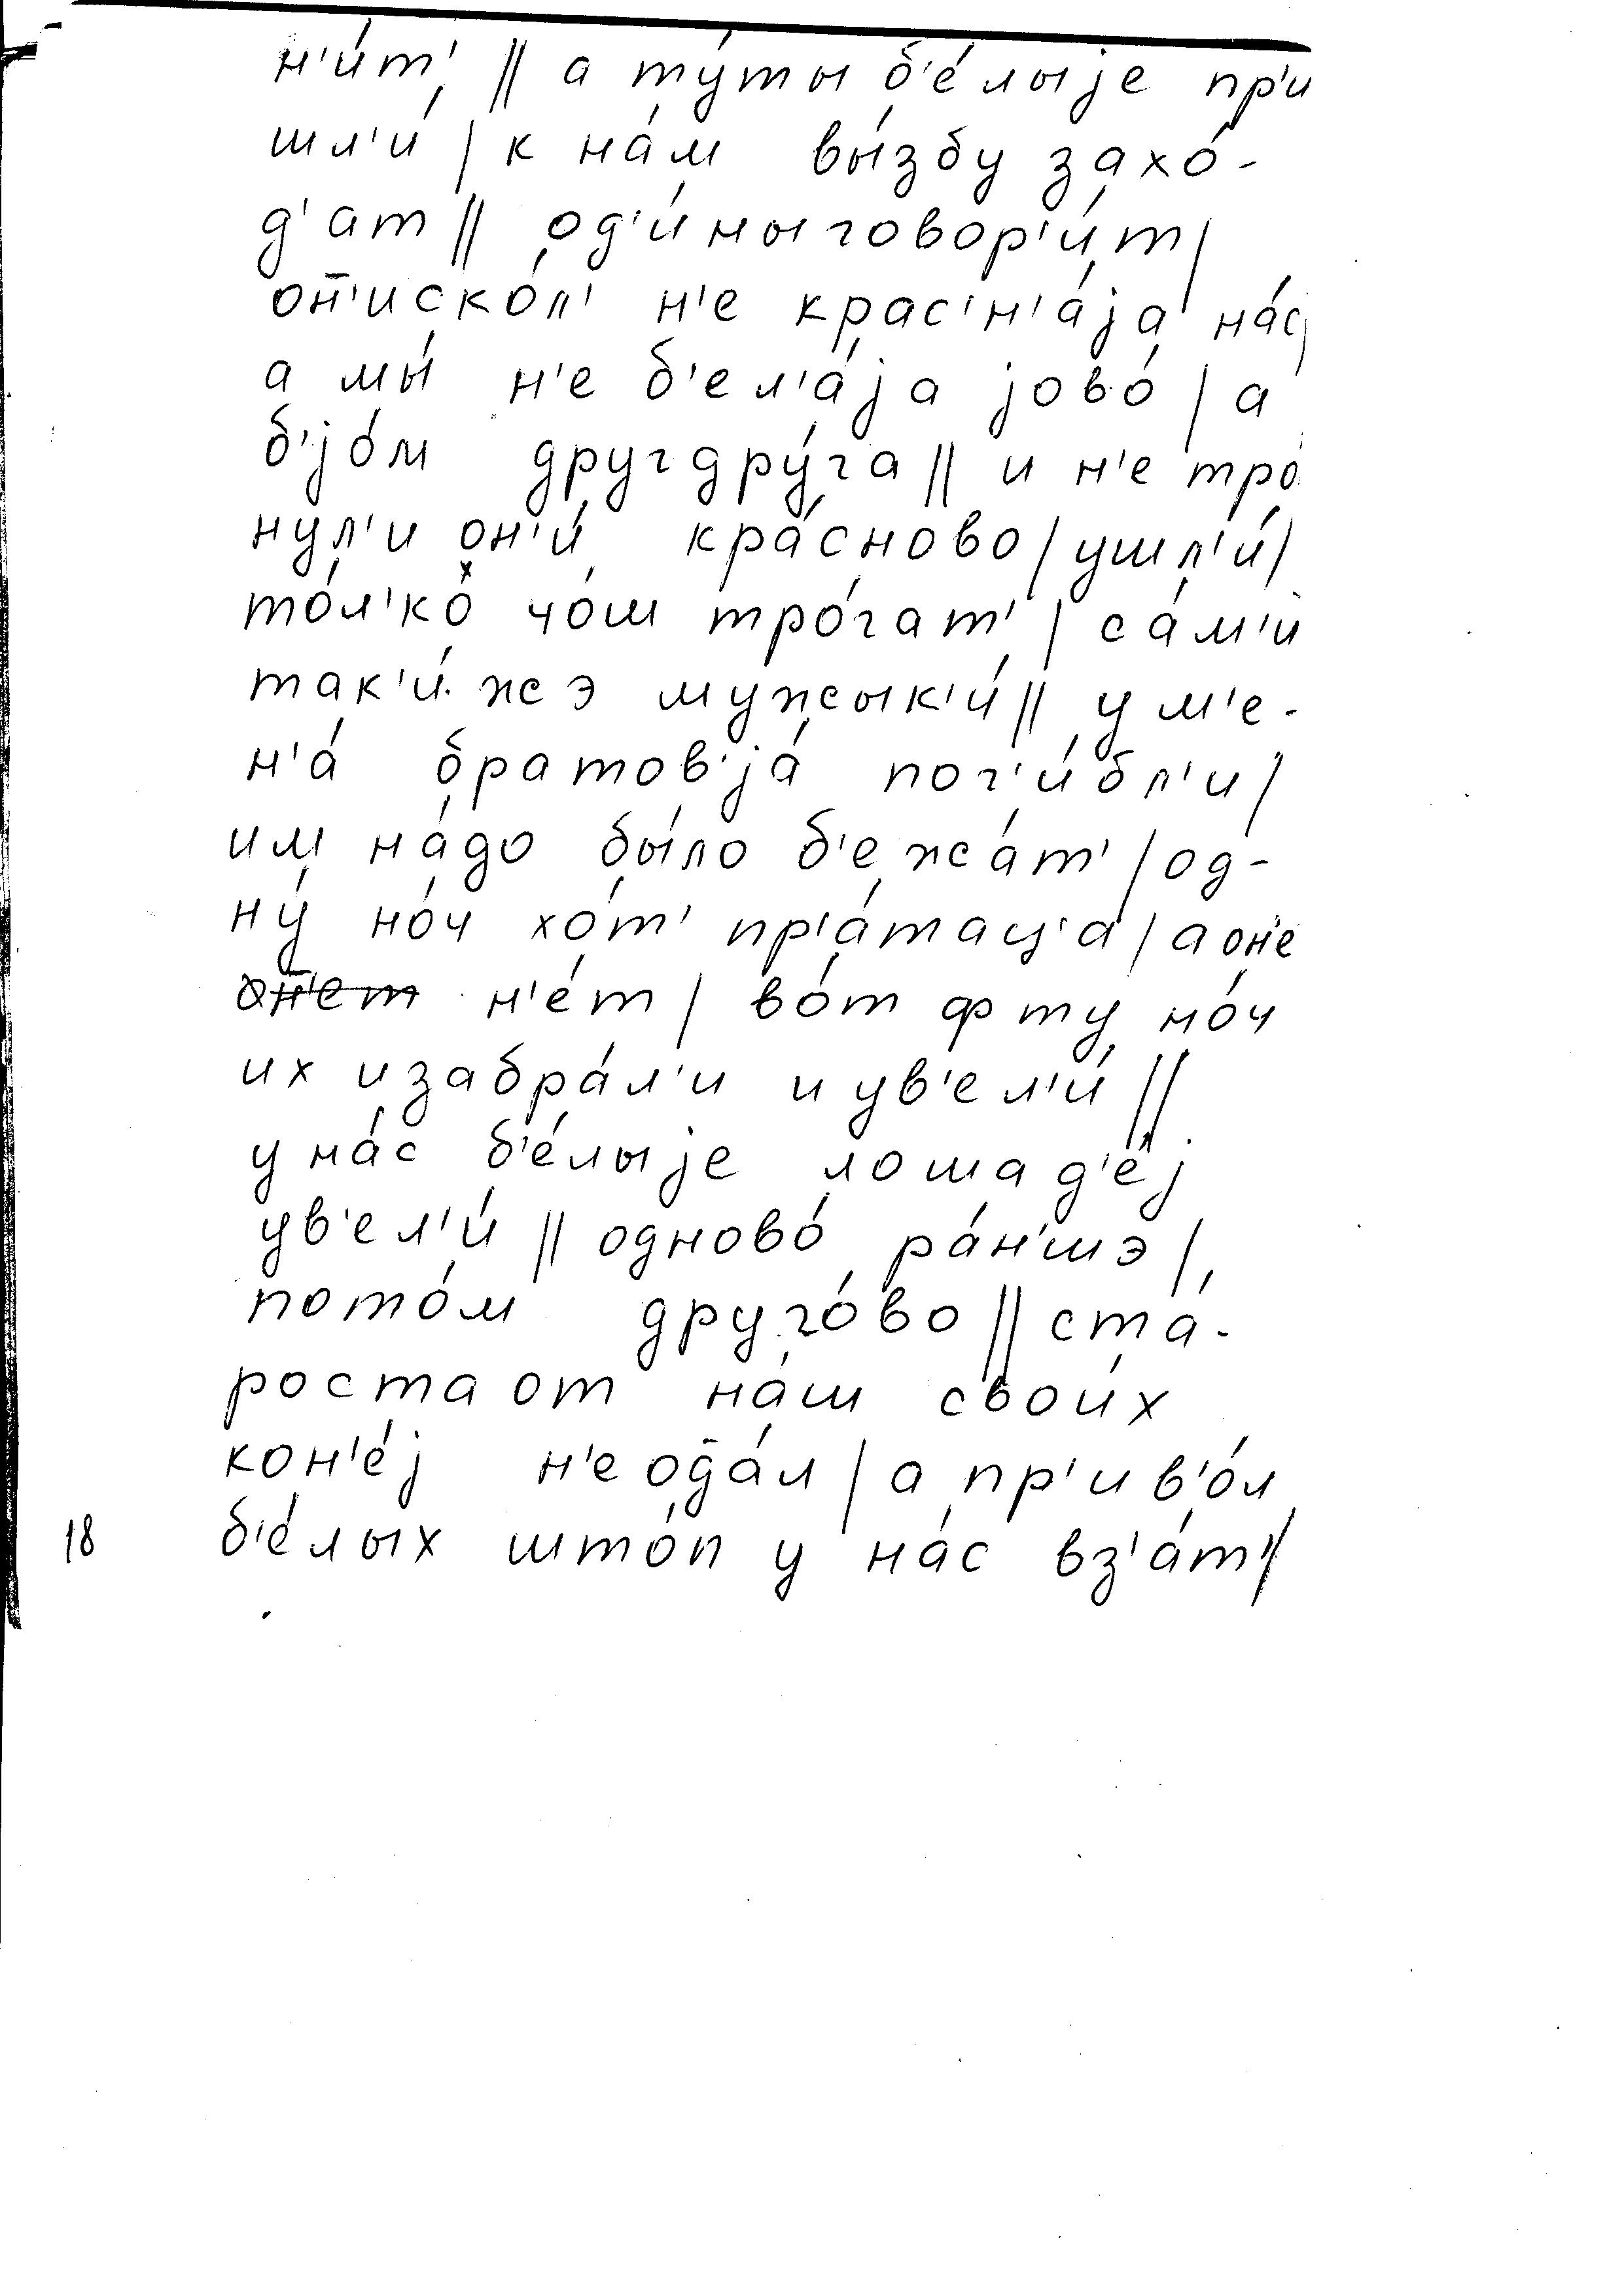 н'и́т' || а ту́ты б'е́лыjе пр'и
шл'и́ | к на́м вы́збу захо́-
д'ат || од'и́ныговор'и́т |
оп̄'иско́л' н'е крас'н'а́jа на́с |
а мы́ н'е б'ел'а́jа jово́ | а
б'jо́м другдру́га || и н'е тро́
нул'и он'и́ кра́сново | ушл'и́ |
то́л'ко чо́ш тро́гат' | са́м'и
так'и́жэ мужык'и́ || ум'е-
н'а́ братов'jа́ пог'и́бл'и |
им на́до бы́ло б'ежа́т' | од-
ну́ но́ч хо́т' пр'а́тац'а | а он'е
н'е́т | во́т фту но́ч
их изабра́л'и и ув'ел'и́ ||
уна́с б'е́лыjе лошад'е́j
ув'ел'и́ || одново́ ра́н'шэ |
пото́м друго́во || ста́-
роста от на́ш свои́х
кон'е́j н'еод̄а́л | а пр'ив'о́л
18 б'е́лых што́п у на́с вз'а́т' |